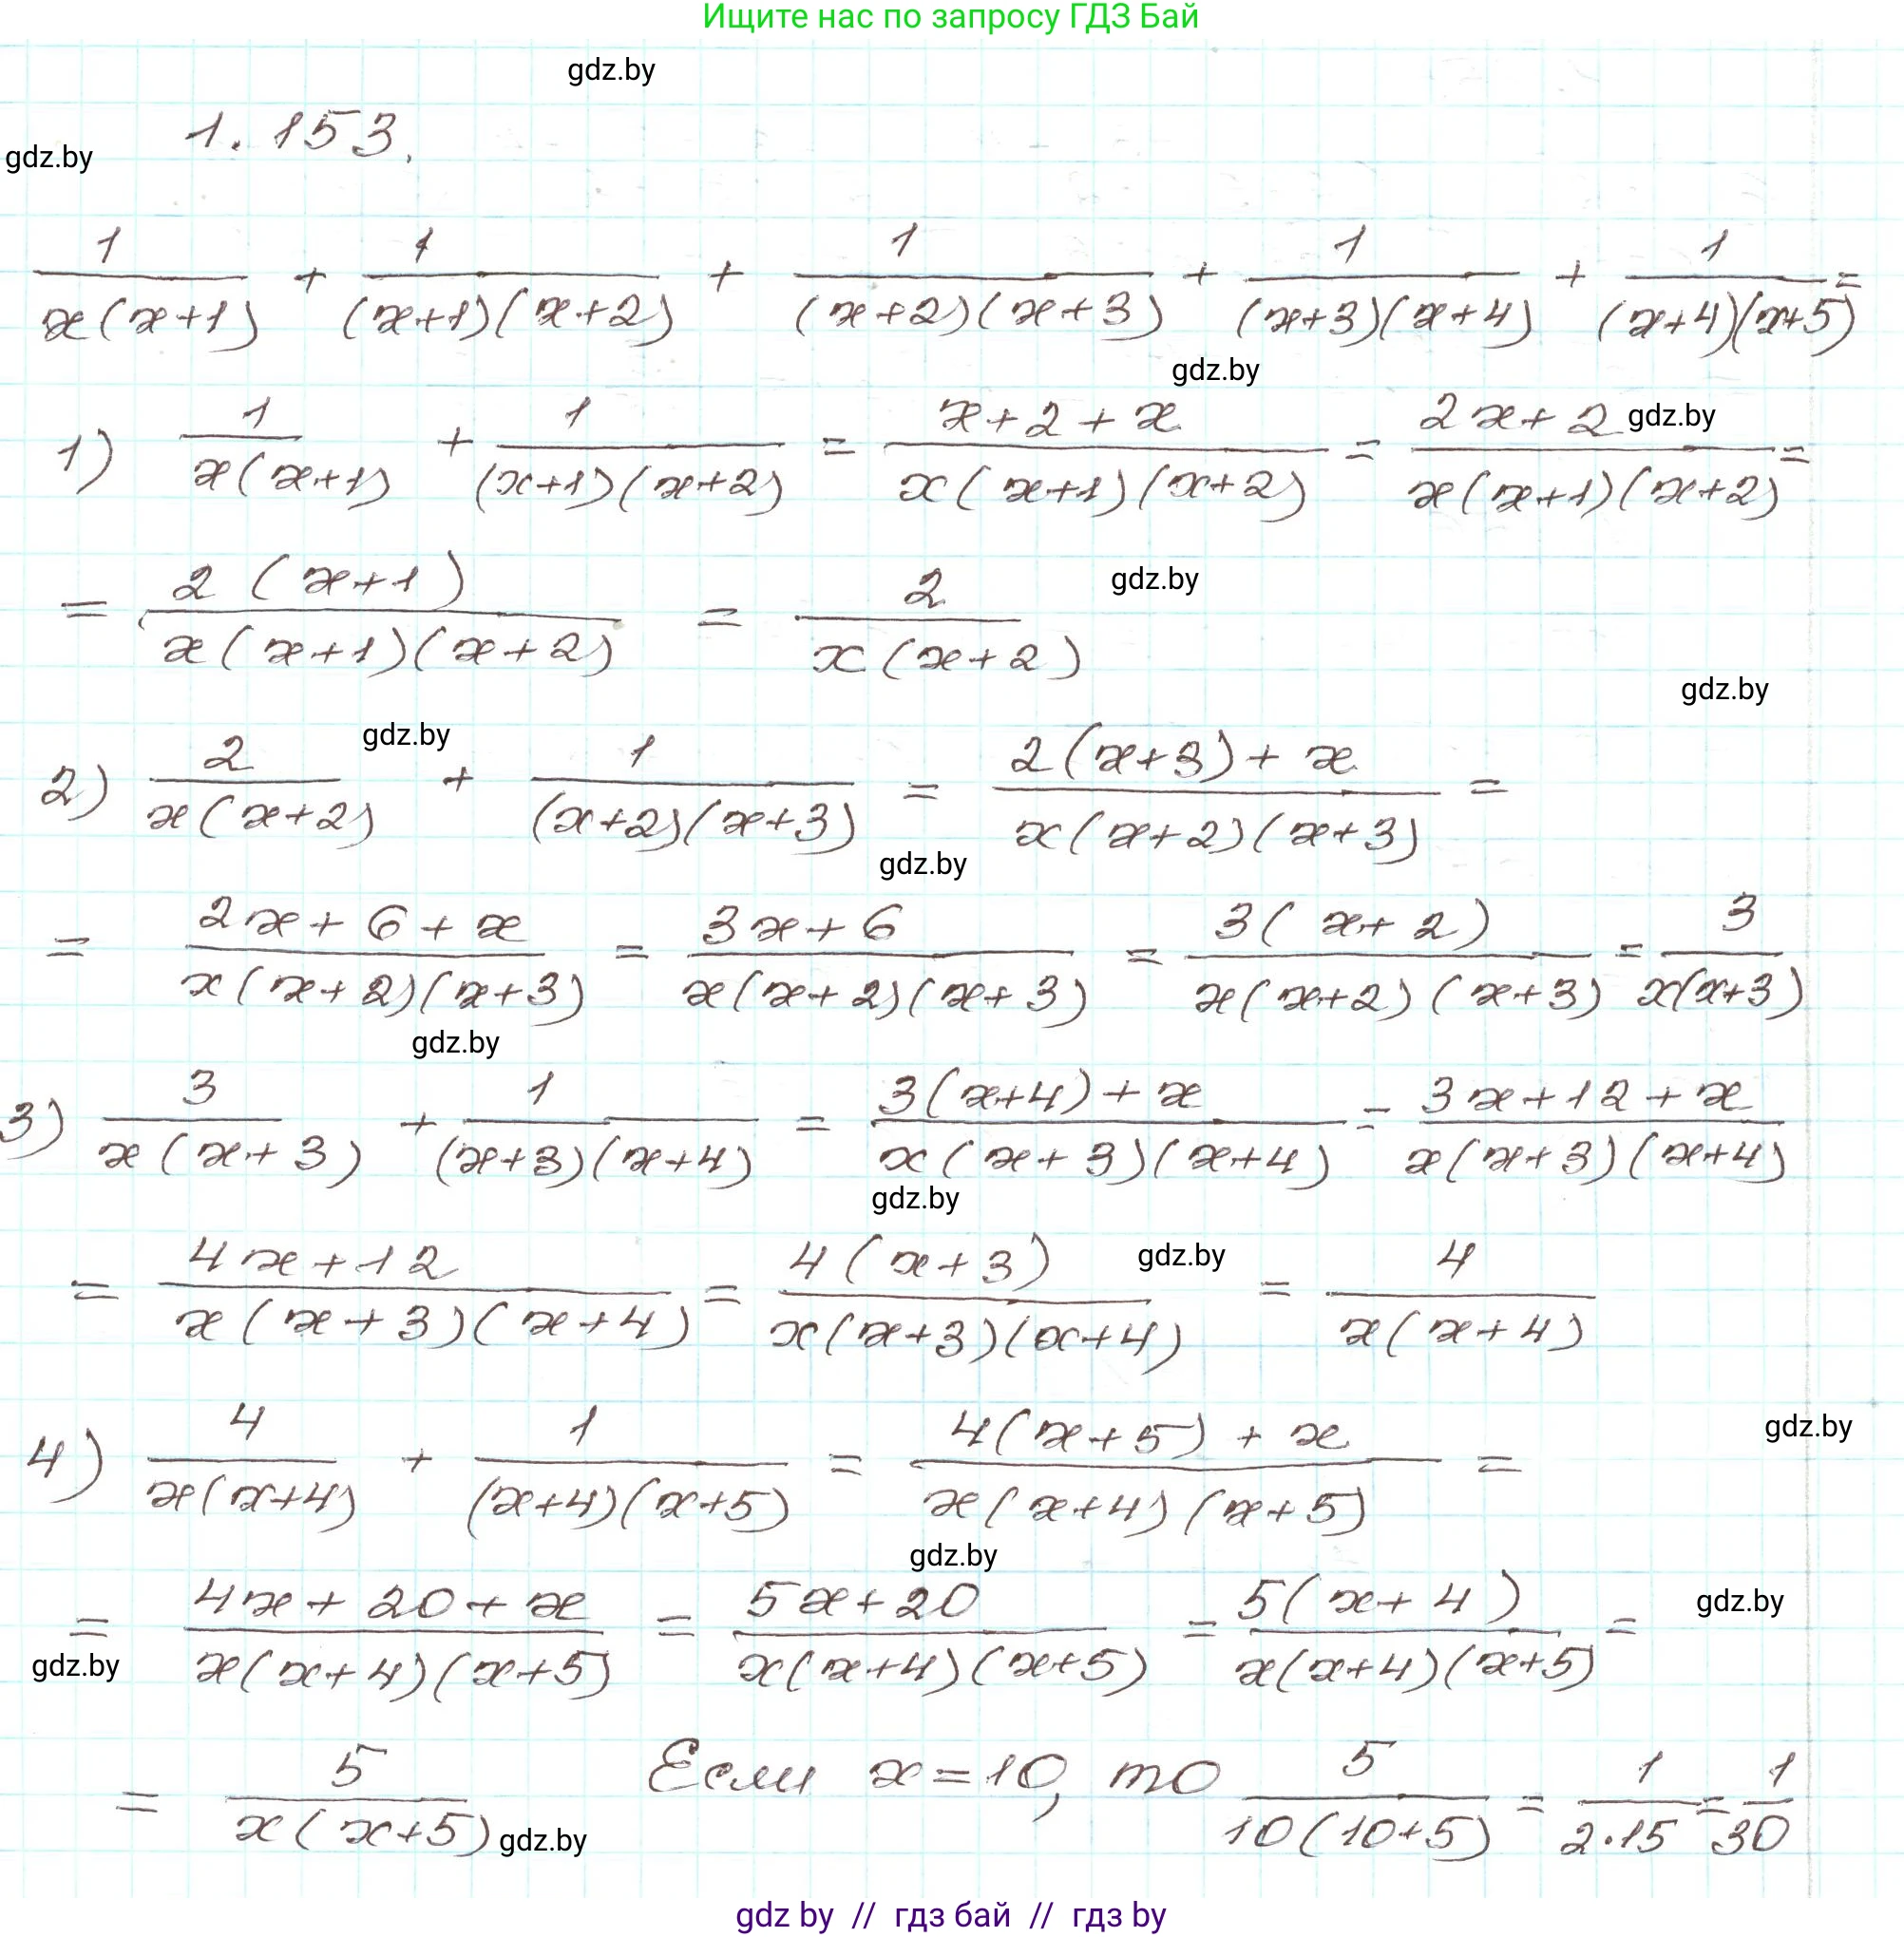 Ищите нас по запросу ГДЗ Бай
gdz.by
1.153.
gdz.by
1/(x(x+1)) + 1/((x+1)(x+2)) + 1/((x+2)(x+3)) + 1/((x+3)(x+4)) + 1/((x+4)(x+5)) =
gdz.by
1) 1/(x(x+1)) + 1/((x+1)(x+2)) = (x+2+x)/(x(x+1)(x+2)) = (2x+2)/(x(x+1)(x+2)) =
gdz.by
= (2(x+1))/(x(x+1)(x+2)) = 2/(x(x+2))
gdz.by
gdz.by
gdz.by
2) 2/(x(x+2)) + 1/((x+2)(x+3)) = (2(x+3)+x)/(x(x+2)(x+3)) =
gdz.by
= (2x+6+x)/(x(x+2)(x+3)) = (3x+6)/(x(x+2)(x+3)) = (3(x+2))/(x(x+2)(x+3)) = 3/(x(x+3))
gdz.by
3) 3/(x(x+3)) + 1/((x+3)(x+4)) = (3(x+4)+x)/(x(x+3)(x+4)) = (3x+12+x)/(x(x+3)(x+4))
gdz.by
= (4x+12)/(x(x+3)(x+4)) = (4(x+3))/(x(x+3)(x+4)) = 4/(x(x+4))
gdz.by
4) 4/(x(x+4)) + 1/((x+4)(x+5)) = (4(x+5)+x)/(x(x+4)(x+5)) =
gdz.by
gdz.by
= (4x+20+x)/(x(x+4)(x+5)) = (5x+20)/(x(x+4)(x+5)) = (5(x+4))/(x(x+4)(x+5)) =
gdz.by
gdz.by
= 5/(x(x+5)) Если x=10, то 5/(10(10+5)) = 1/(2·15) = 1/30
gdz.by
gdz by // гдз бай // гдз by